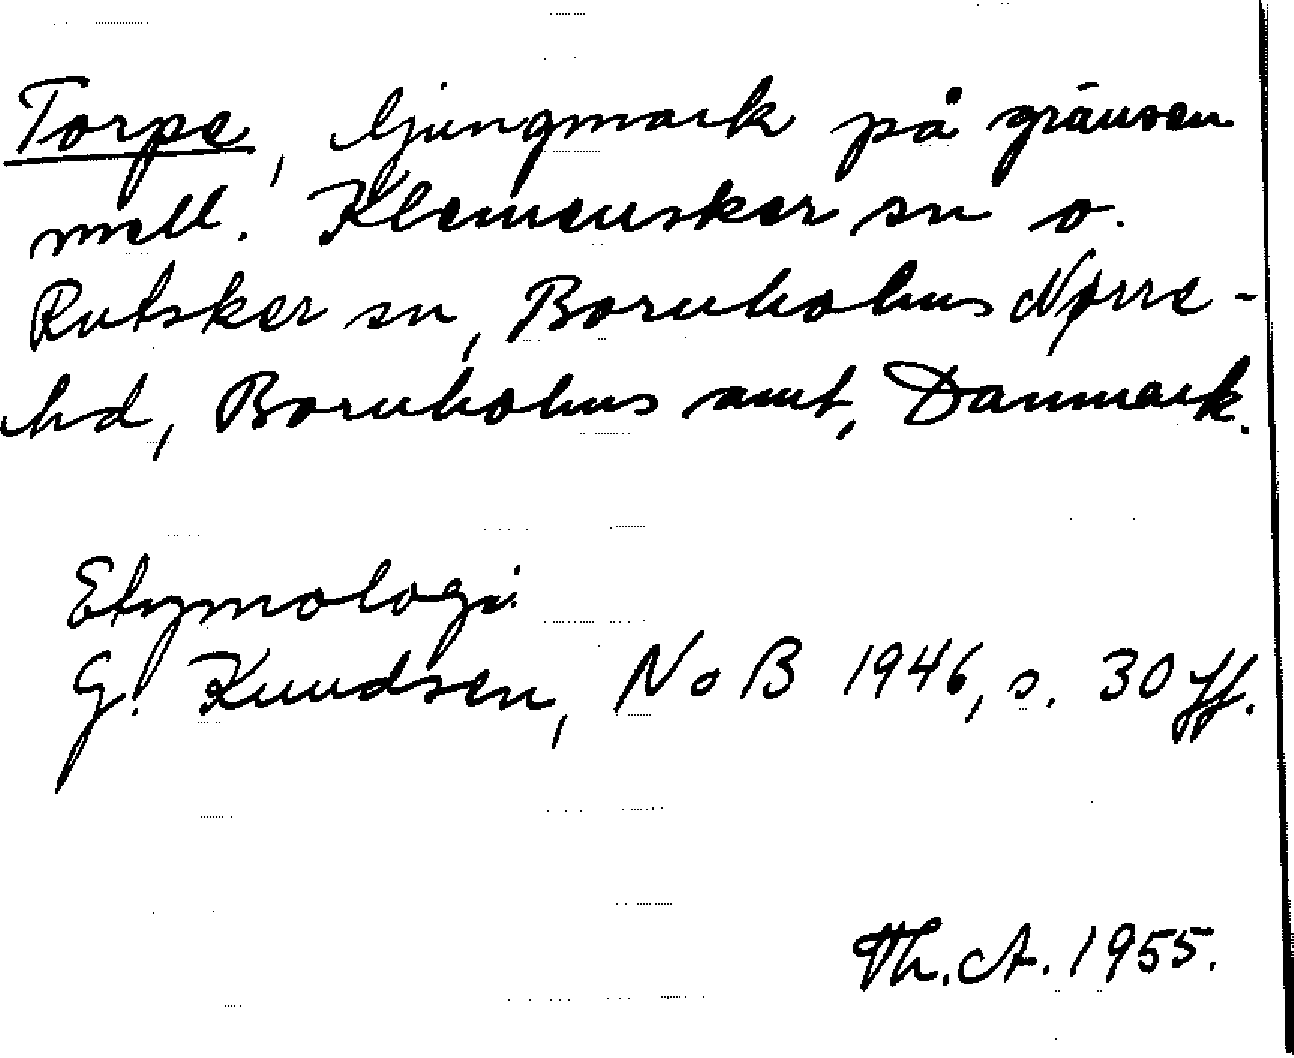 Torpe, ljungmark på gränsen
mell. Klemensker sn o.
Rutsker sn, Bornholms Nørre-
hd, Bornholms amt, Danmark.
Etymologi.
G. Knudsen, NoB 1946, s. 30 ff.
Th. A. 1955.